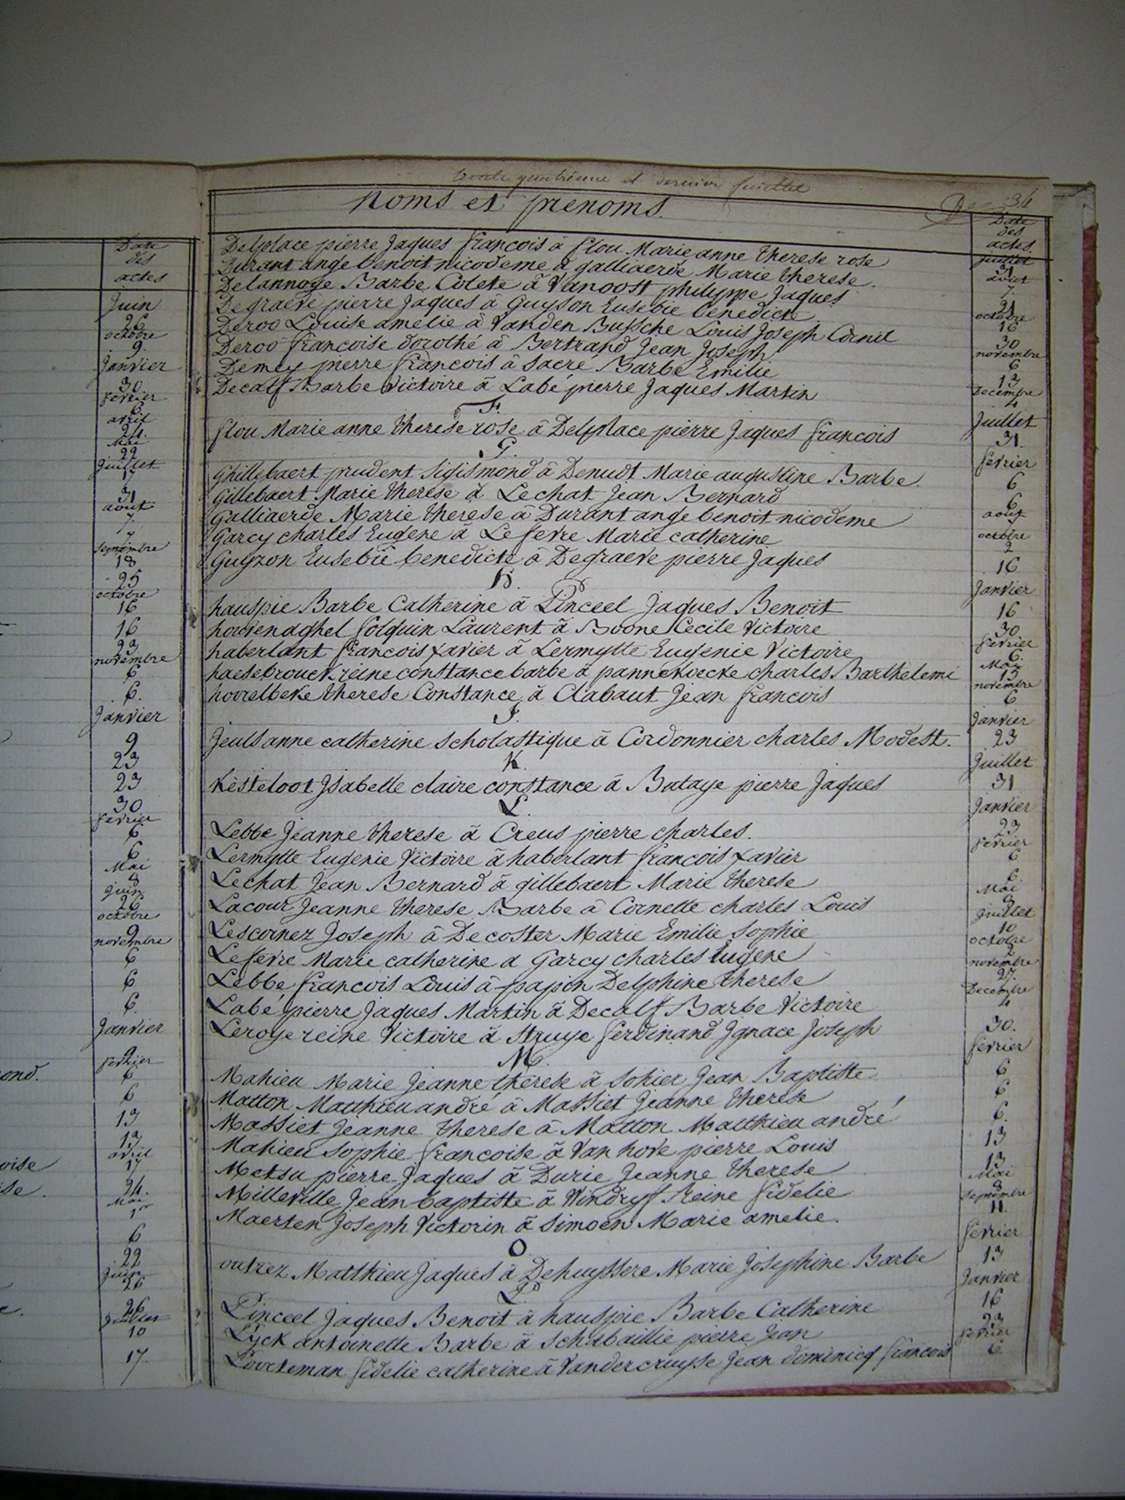 trente quatrième et dernier feuillet
34
Noms et prénoms.
Date
des
actes
Delplace pierre Jaques francois à flou Marie anne therese rose
juillet
31
Durant ange benoit nicodeme à galliaerde Marie therese
août
7
Delannoye Barbe Colete à Vanoost philyppe Jaques
21
Degraeve pierre Jaques à Guyson Eusebie benedicte
octobre
16
Deroo Louise amelie à Vanden Bussche Louis Joseph Cornil
30
Deroo francoise dorothé à Bertrand Jean Joseph
novembre
6
Demey pierre francois à Sacre Barbe Emilie
13
Decalf Barbe Victoire à Labé pierre Jaques Martin
Decembre
4
F.
flou Marie anne therese rose à Delplace pierre Jaques francois
Juillet
31
G.
Ghillebaert prudent Sigismond à Denudt Marie augustine Barbe
fevrier
6
Gillebaert Marie therese à Lechat Jean Bernard
6
Galliaerde Marie therese à Durant ange benoit nicodeme
août
7
Garcy charles Eugene à Lefevre Marie catherine
octobre
2
Guyzon Eusebie benedicte à Degraeve pierre Jaques
16
H.
hauspie Barbe Catherine à Pinceel Jaques Benoit
Janvier
16
houvenaghel folquin Laurent à Boone Cecile Victoire
30
haberlant francois xavier à Lermytte Eugenie Victoire
fevrier
6
haesebrouck reine constance barbe à pannekoecke charles Barthelemi
Mai
15
hoorelbeke therese Constance à Clabaut Jean francois
novembre
6
J.
Jeuls anne catherine scholastique à Cordonnier charles Modest.
Janvier
23
K.
Kesteloot Isabelle claire constance à Butaye pierre Jaques
Juillet
31
L.
Lebbe Jeanne therese à Creus pierre charles.
Janvier
23
Lermytte Eugenie Victoire à haberlant francois xavier
fevrier
6
Lechat Jean Bernard à gillebaert Marie therese
6
Lacour Jeanne therese Barbe à Cornette charles Louis
Mai
Lescornez Joseph à Decoster Marie Emilie Sophie
Juillet
10
Lefevre Marie catherine a Garcy charles Eugene
octobre
2
Lebbe francois Louis à papin Delphine therese
novembre
27
Labé pierre Jaques Martin à Decalf Barbe Victoire
Decembre
4
Leroye reine Victoire à Struye ferdinand Ignace Joseph
30.
M.
Mahieu Marie Jeanne thérese à Sohier Jean Baptiste
fevrier
6
Matton Matthieu andré à Massiet Jeanne therese
6
Massiet Jeanne therese à Matton Matthieu andré
6
Mahieu Sophie francoise à Van hove pierre Louis
13
Metsu pierre Jaques à Durie Jeanne therese
13
Milleville Jean baptiste à Windryf Reine fidelie
Mai
8
Maerten Joseph Victorin à Simoen Marie amelie.
Septembre
11
O
outrez Matthieu Jaques à Dehuyssere Marie Josephine Barbe
fevrier
13
P.
Pinceel Jaques Benoit à hauspie Barbe Catherine
Janvier
16
Pyck antoinette Barbe à Schabaillie pierre Jean
23
Poorteman fidelie catherine à Vandercruysse Jean dominicq francois
fevrier
6
Date
des
actes
Juin
26
octobre
9
Janvier
30
fevrier
6
avril
24
Mai
22
Juillet
17
31
août
7
7
Septembre
18
25
octobre
16
16
23
novembre
6
6.
Janvier
9
23
23
30
fevrier
6
6
Mai
8
Juin
26
octobre
9
novembre
6
6
6.
Janvier
9
fevrier
6
6
13
13
avril
17
24.
Mai
1er
6
22
Juin
26
26
Juillet
10
17.